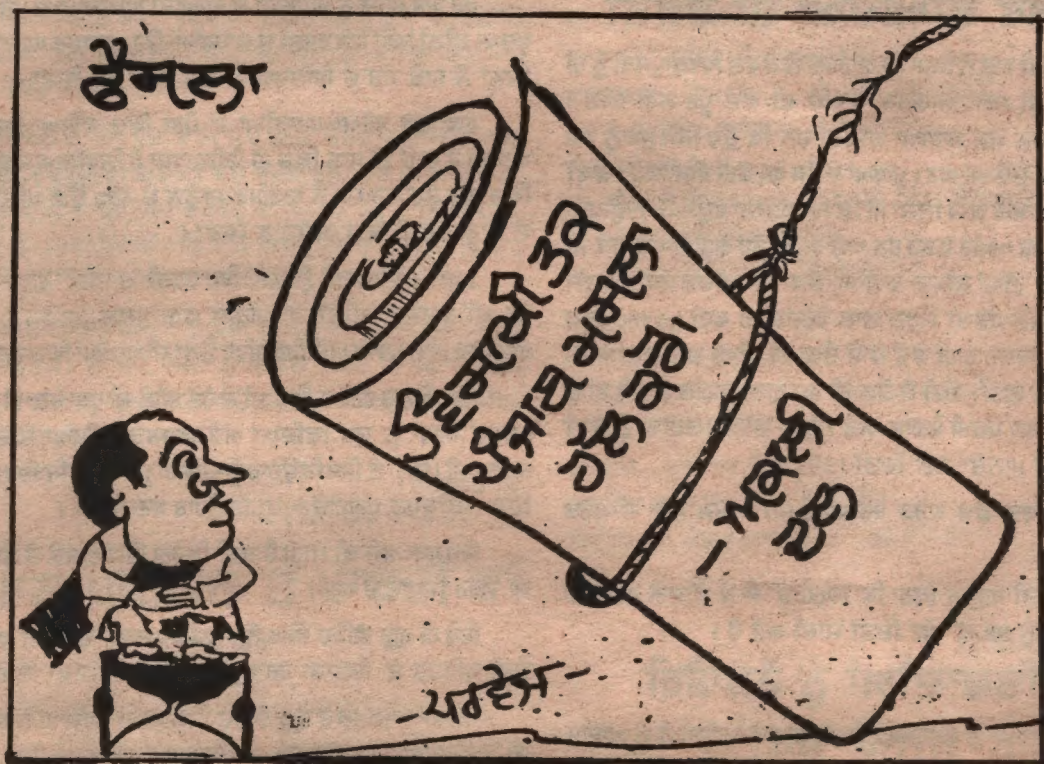 ਫੈਸਲਾ
ਵਿਸਾਖੀ ਤਕ
ਪੰਜਾਬ ਮਸਲਾ
ਹੱਲ ਕਰੋ।
-ਅਕਾਲੀ
ਦਲ
-ਪਰਵੇਜ਼-